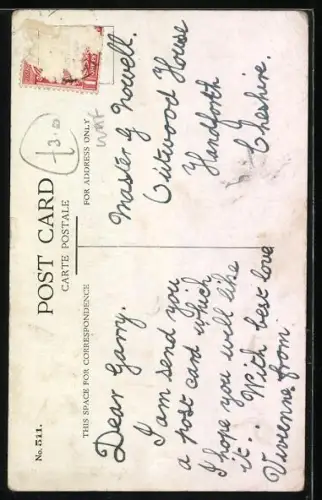 No. 511.
POST CARD
CARTE POSTALE
THIS SPACE FOR CORRESPONDENCE
FOR ADDRESS ONLY
£3.0
Dear Garry.
I am send you
a post card which
I hope you will like
it. With best love
from
Vivienne.
Master G Nowell.
Outwood House
Handforth
Cheshire.